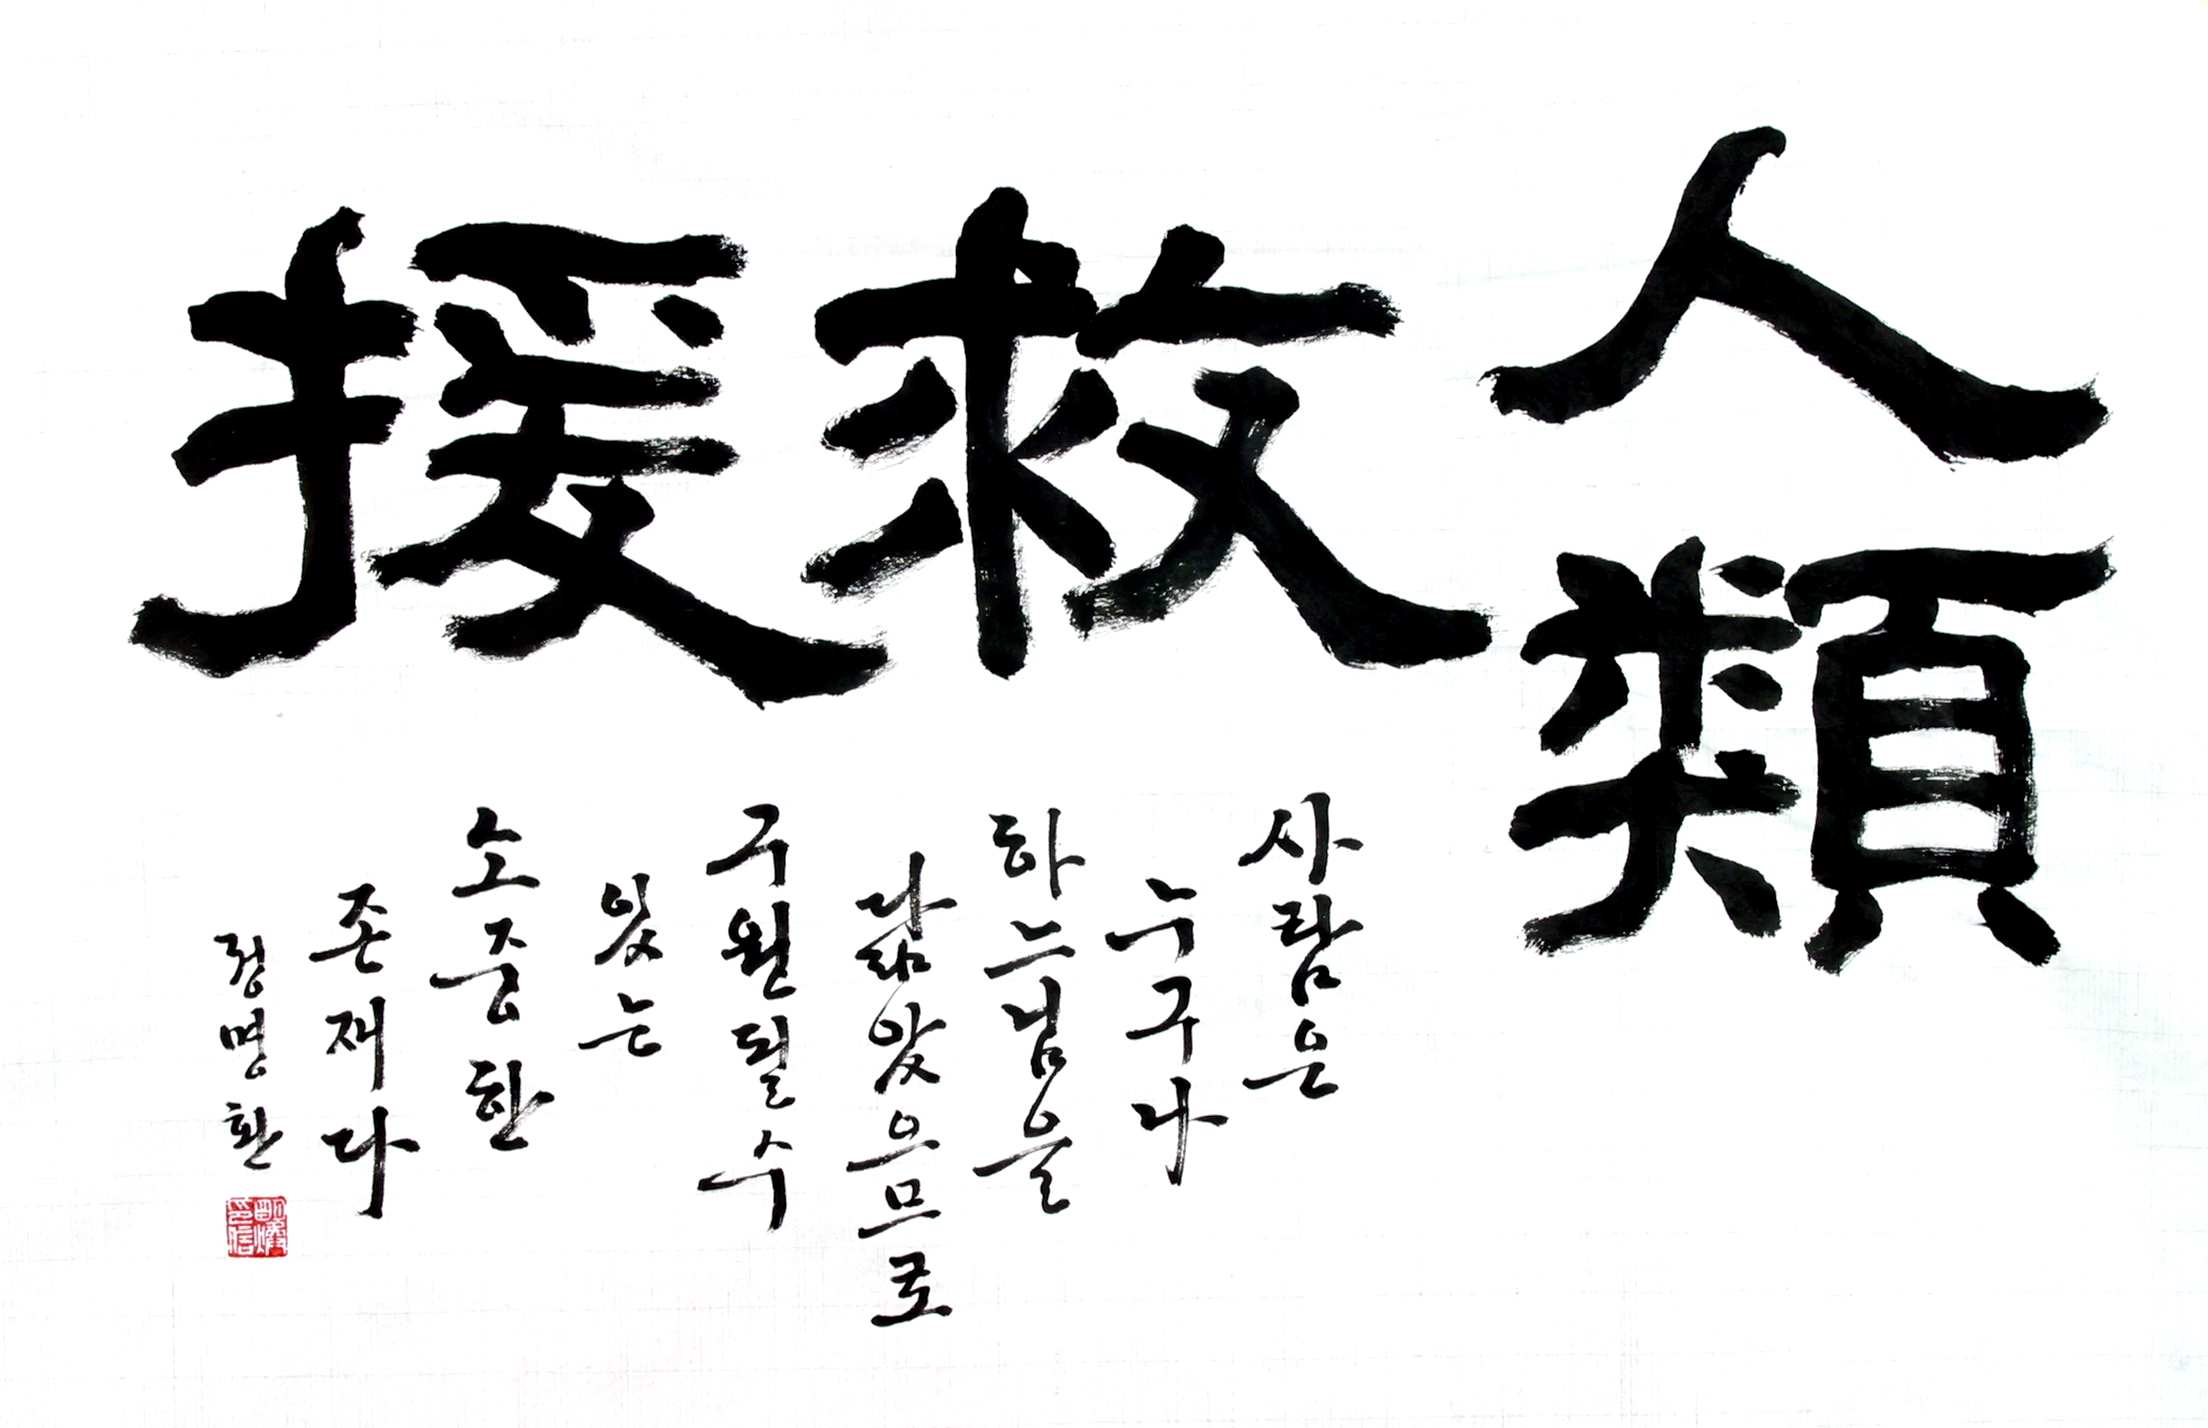 人類
救援
사람은
누구나
하느님을
닮았으므로
구원될 수
있는
소중한
존재다
정명환